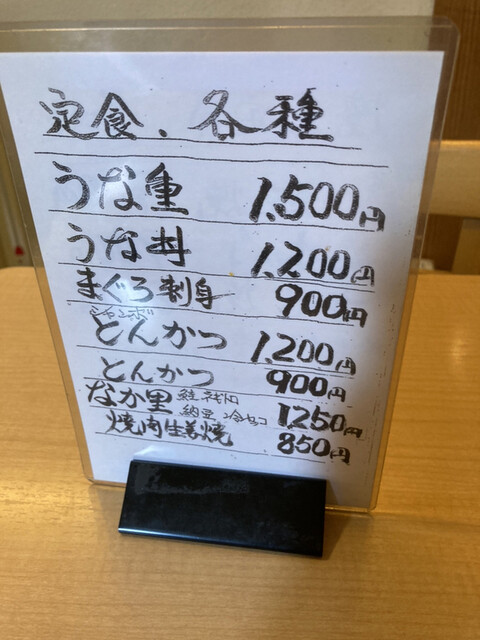 定食、各種
うな重 1,500円
うな丼 1,200円
まぐろ刺身 900円
ジャンボ
とんかつ 1,200円
とんかつ 900円
なか里 納豆 1,250円
焼肉生姜焼 850円